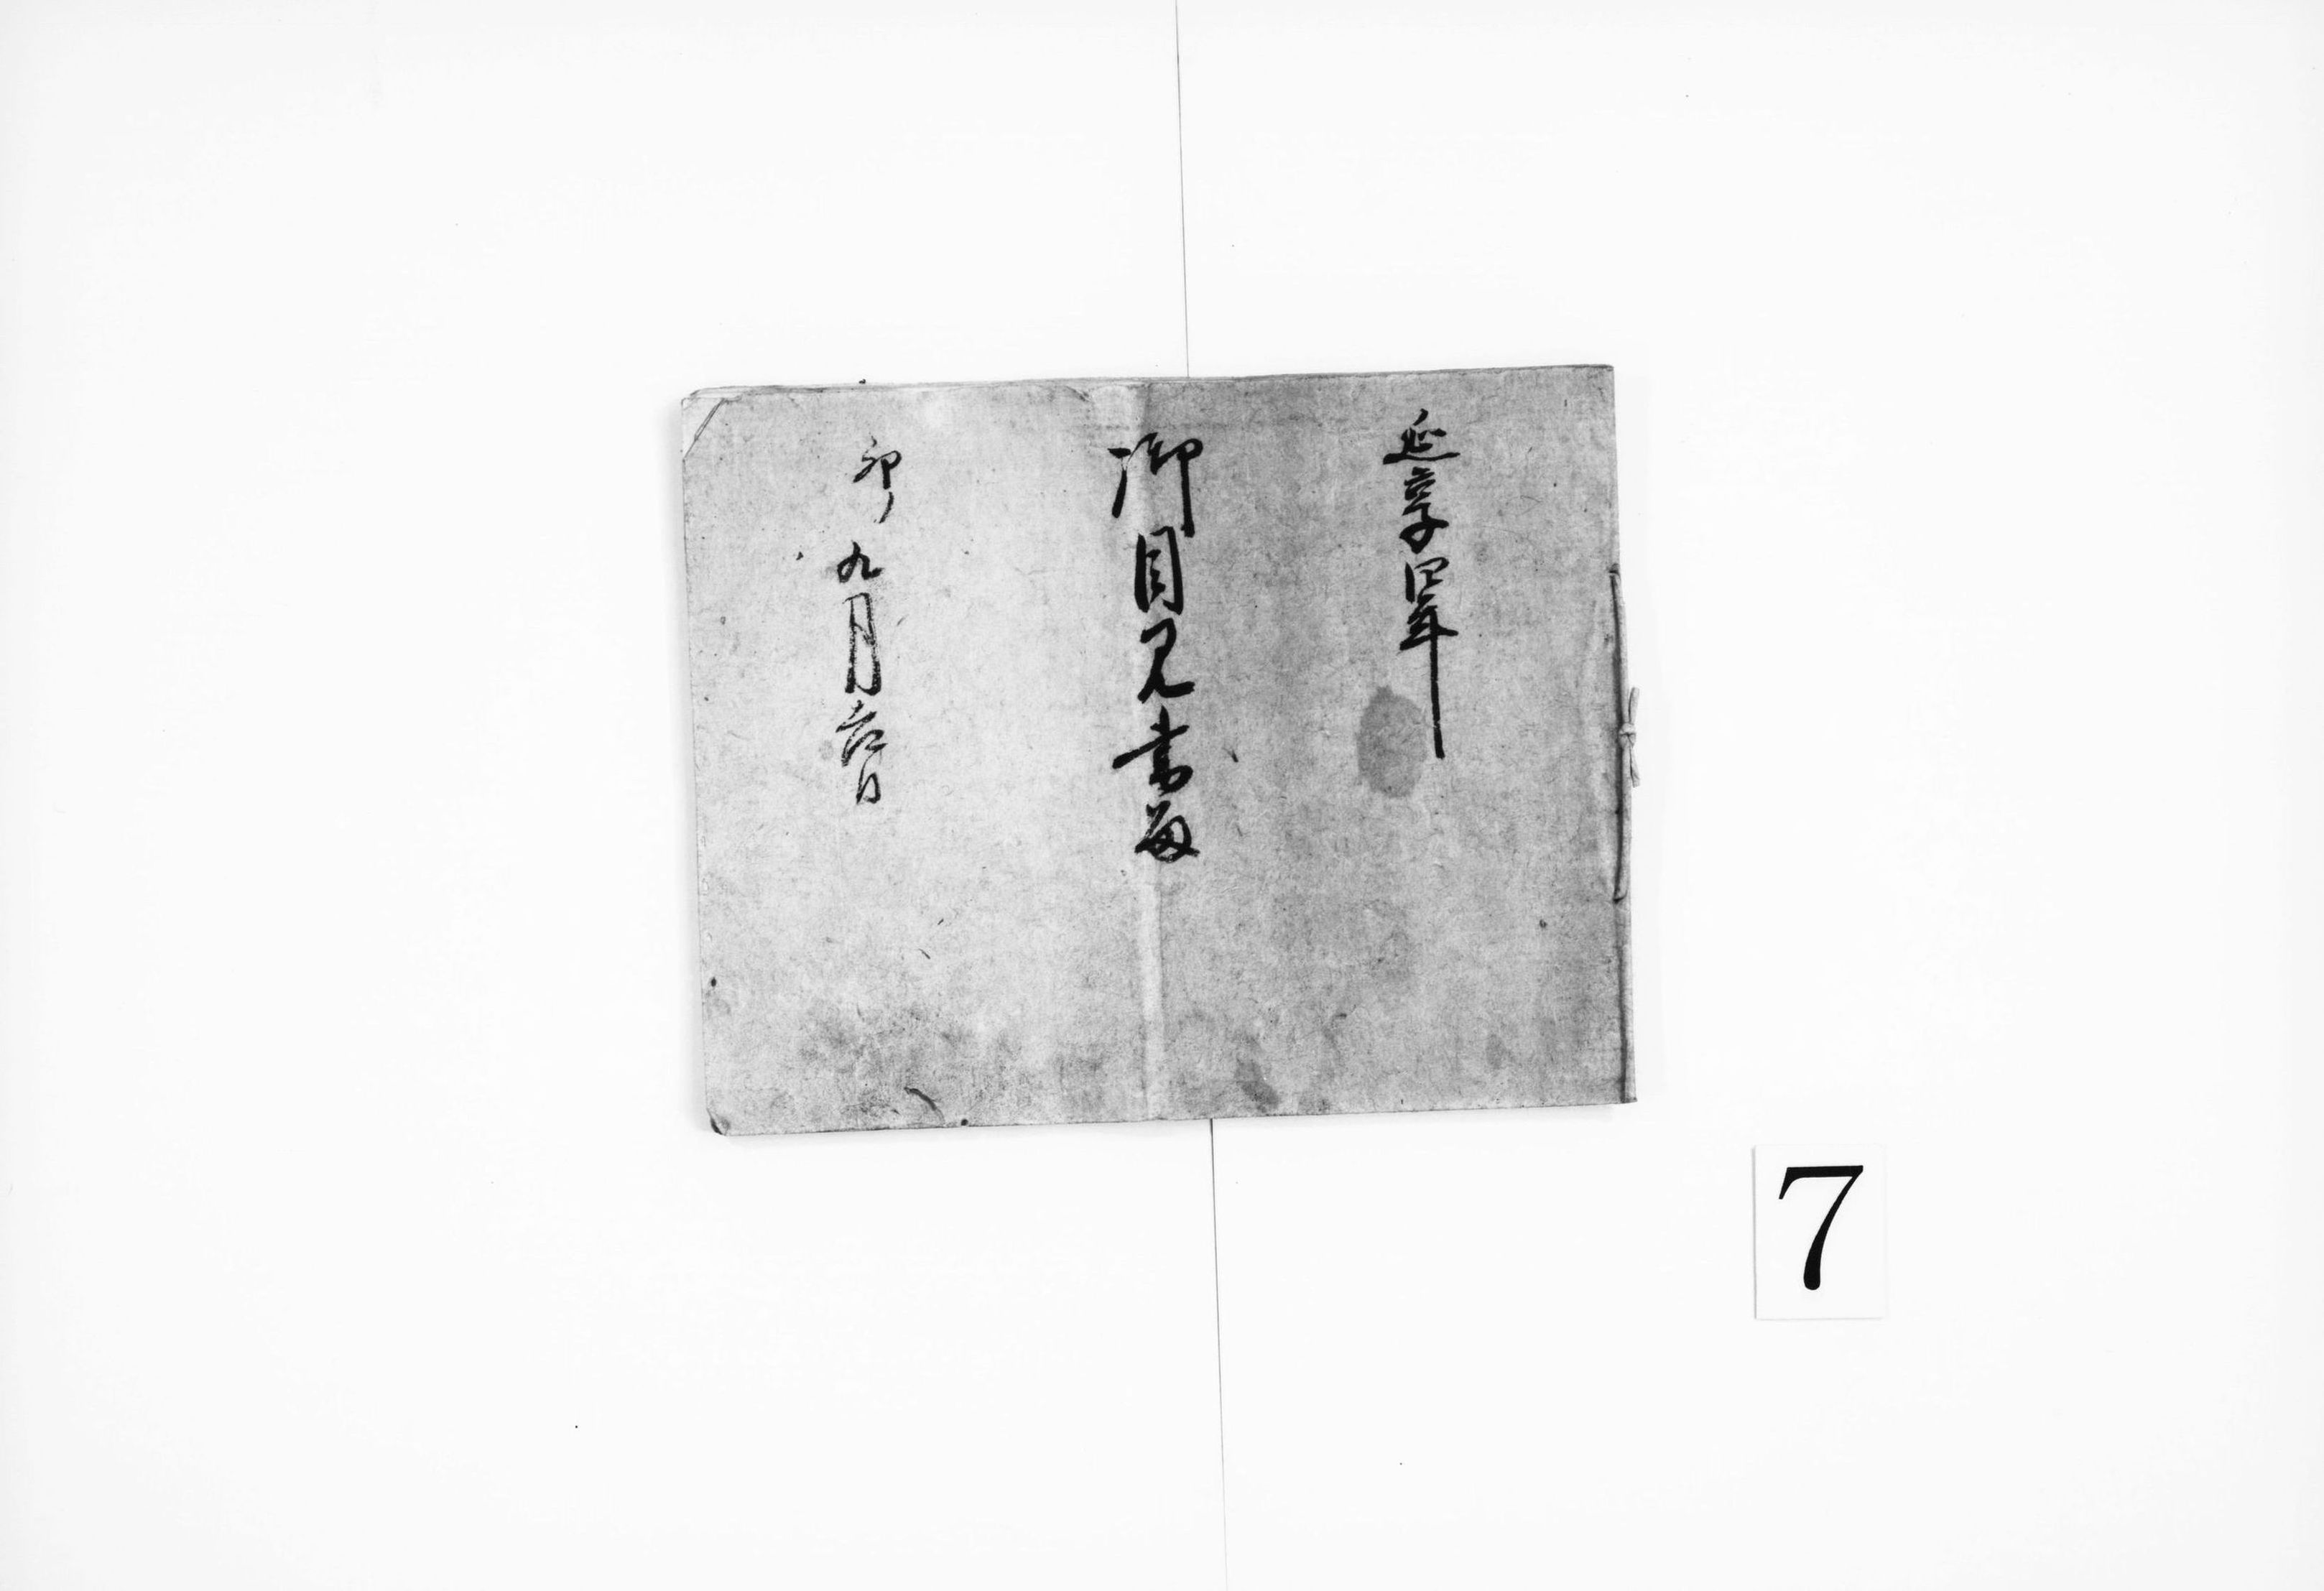 延享四年
御目見書留
卯ノ九月六日
7